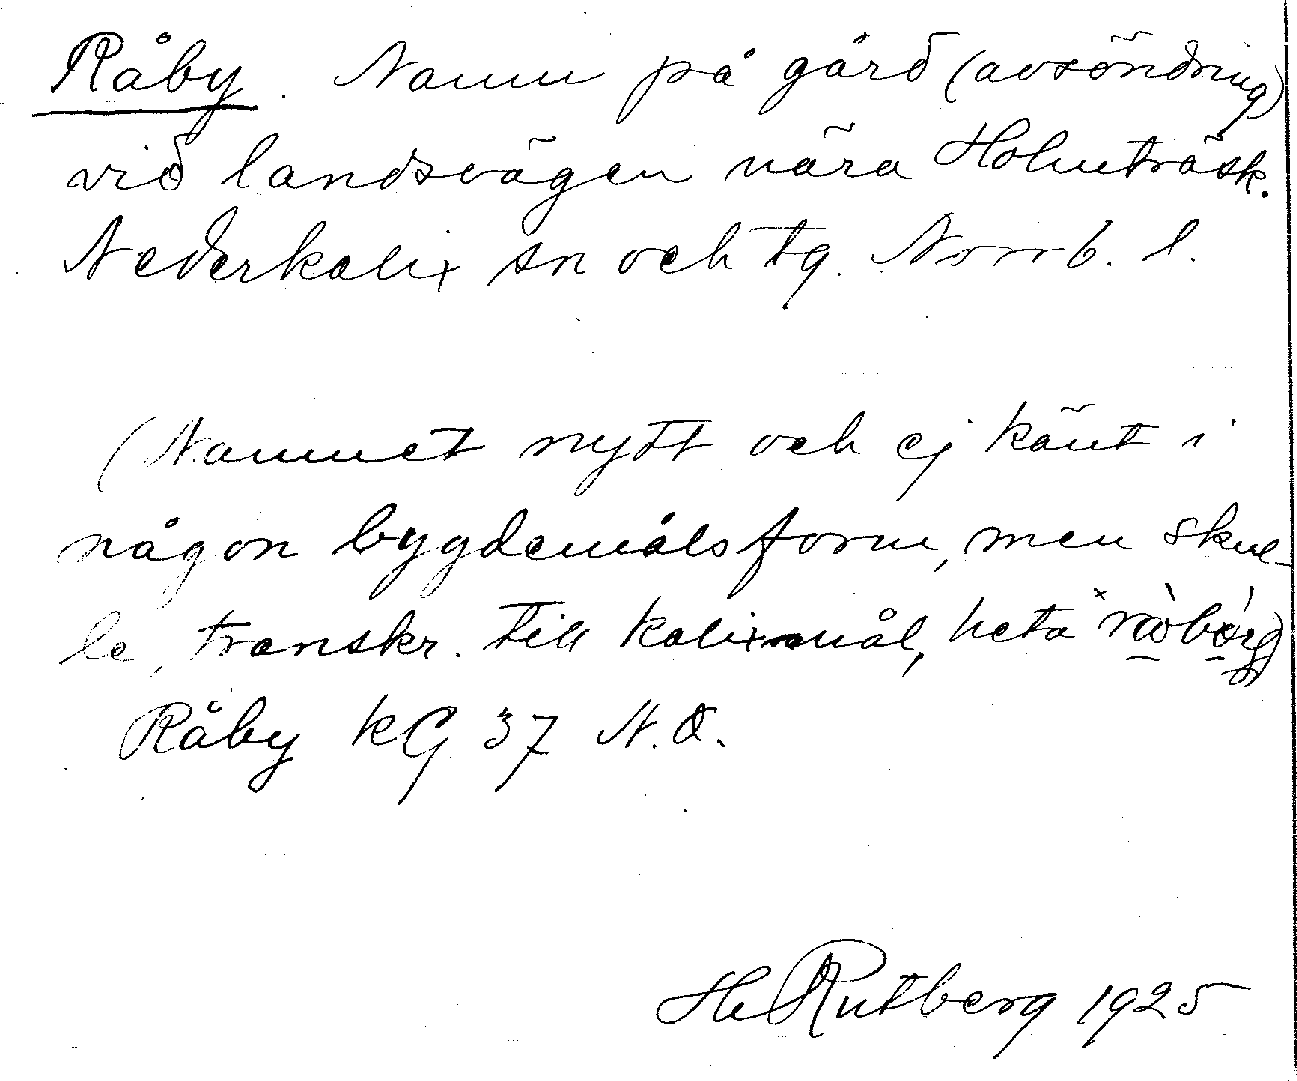 Råby. Namn på gård (avsöndring)
vid landsvägen nära Holmträsk.
Nederkalix sn och tg. Norrb. l.
(Namnet nytt och ej känt i
någon bygdemålsform, men skul-
le, transkr. till kalixmål, heta
Råby KG 37 N.O.
HRutberg 1925